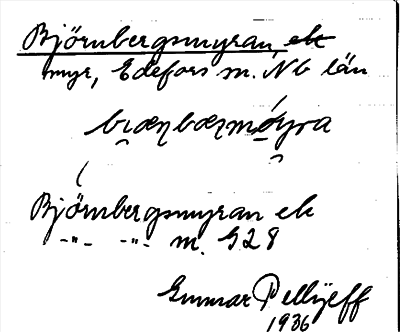 Björnbergsmyran, ek
myr, Edefors sn. Nb län
bıœṇbœṛmóyra
Björnbergsmyran ek
-"- -"- m. G28
Gunnar Pellijeff
1936